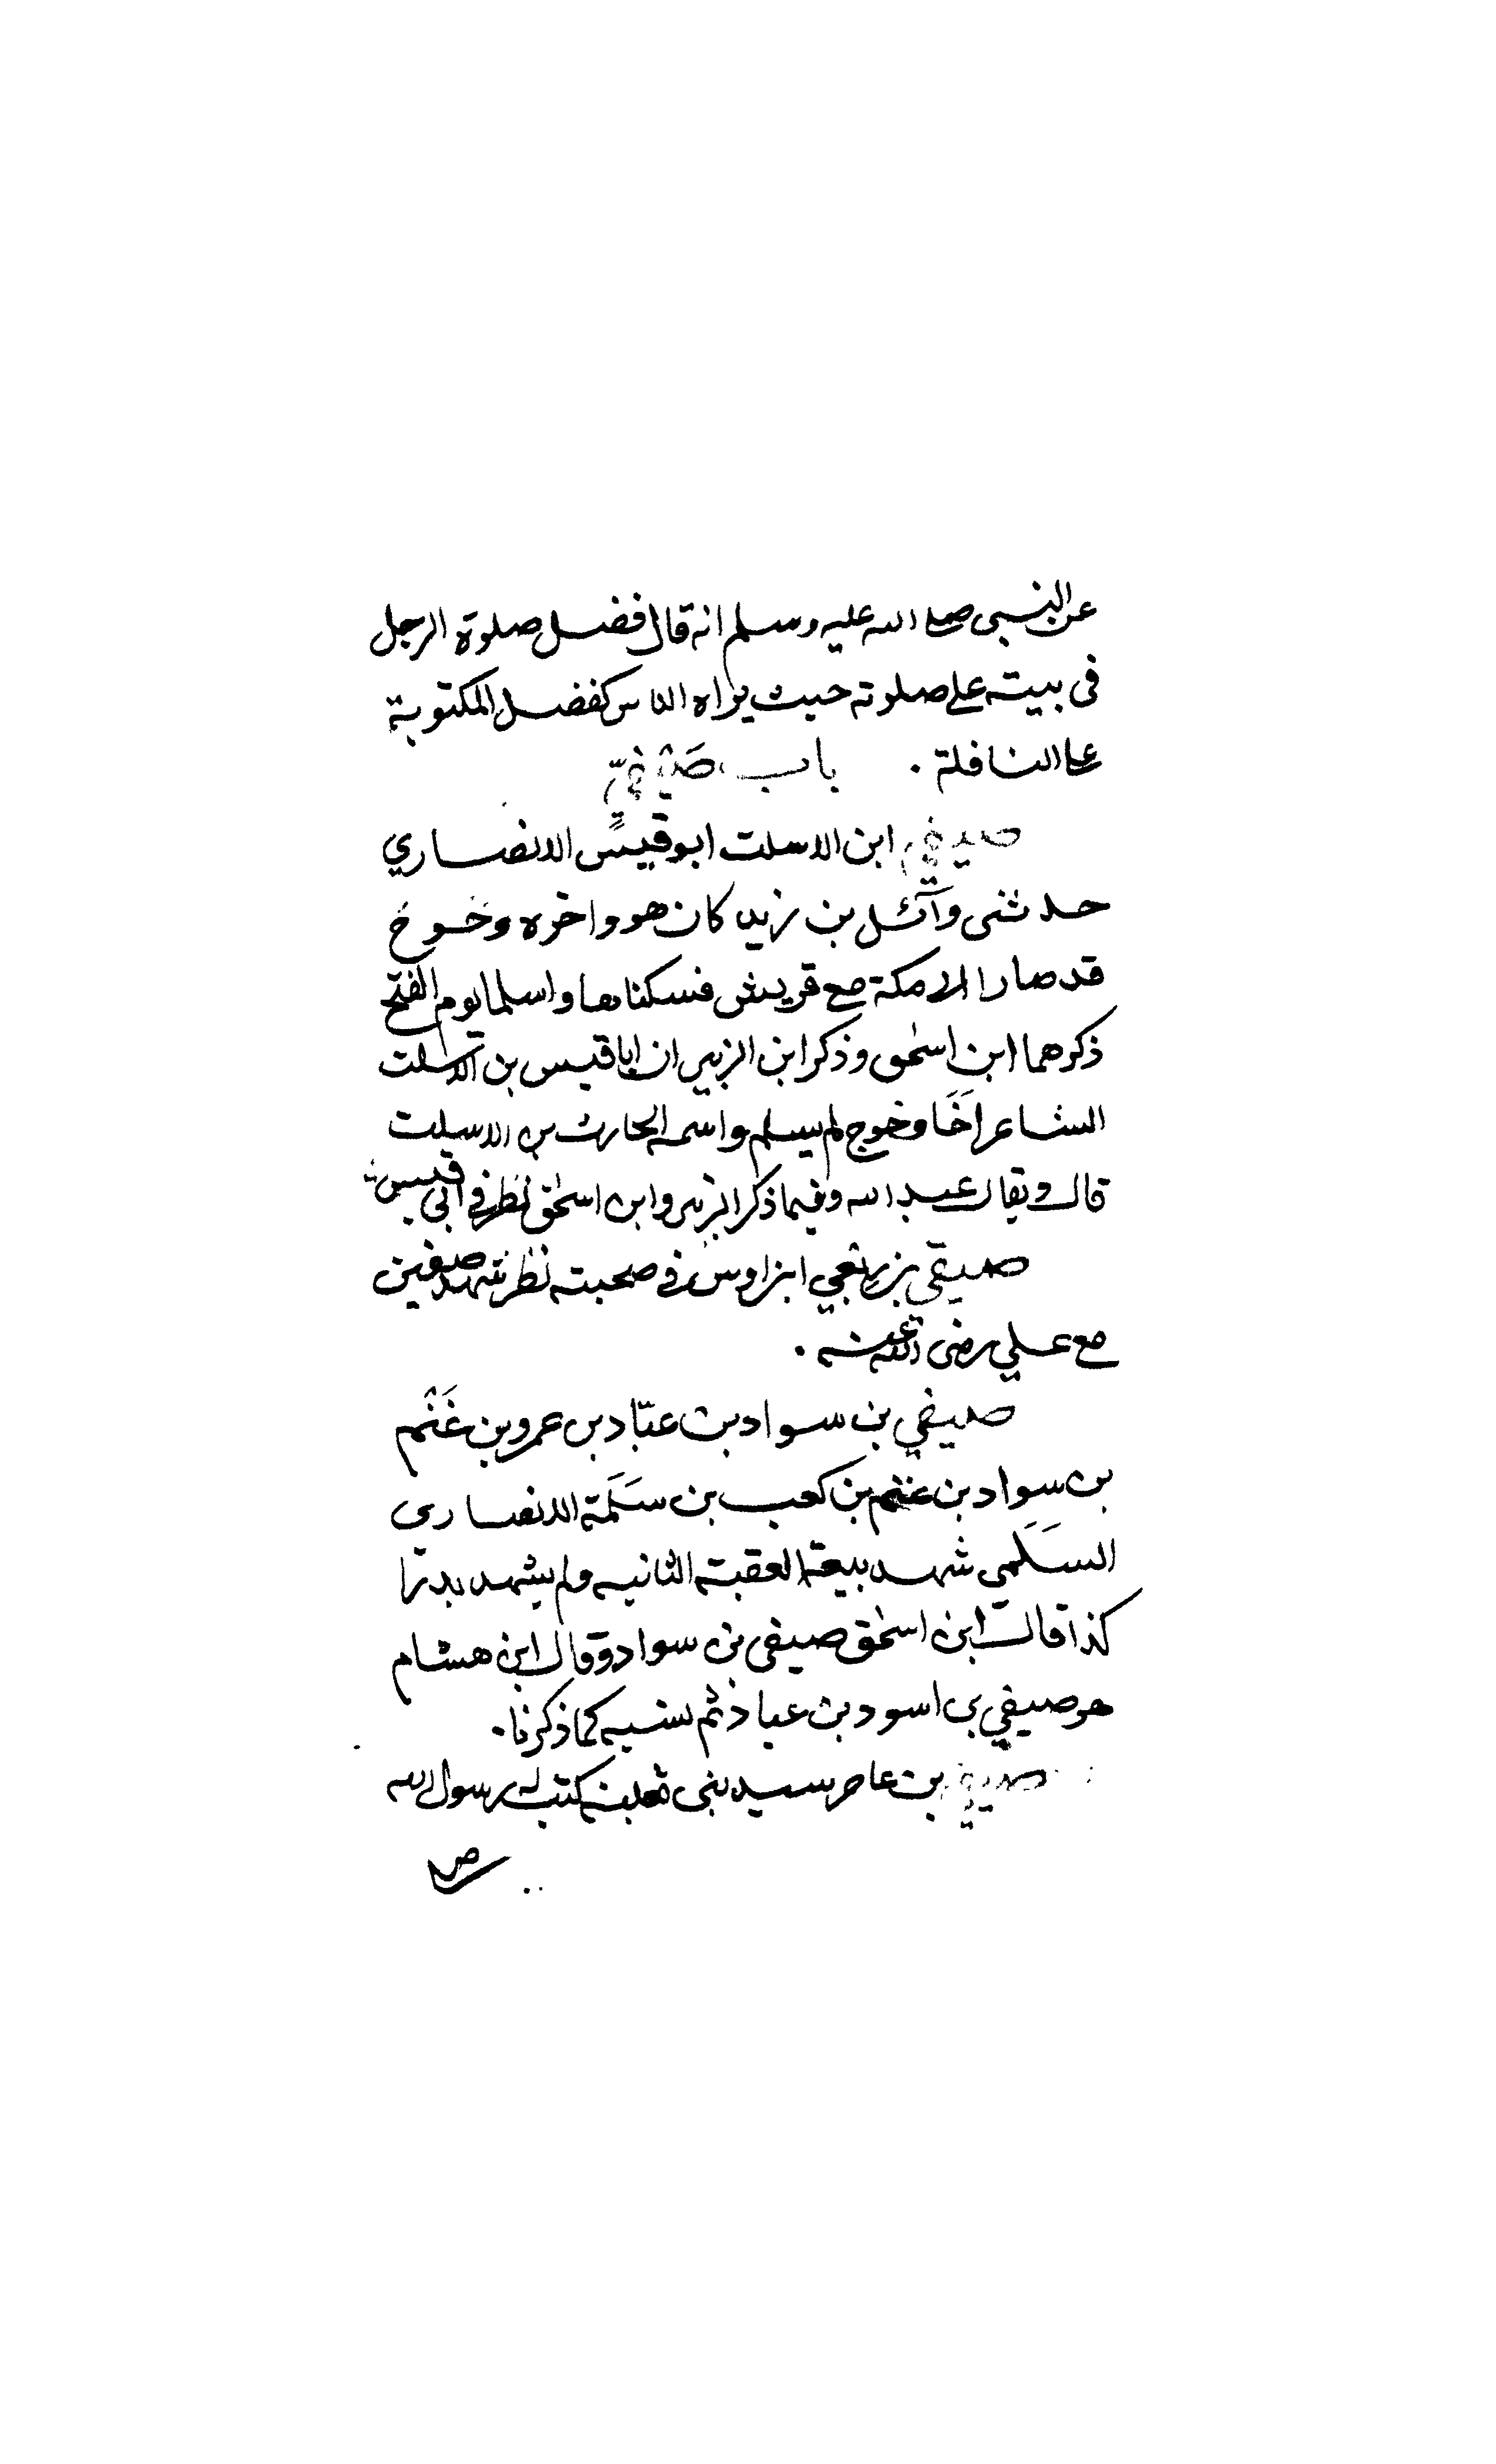 عن النبى صلى الله عليه وسلم انه قال فضل صلوة الرجل
فى بيته على صلوته حيث يراه الناس كفضل المكتوبة
على النافلة . باب صَيْفيّ
صيفي ابن الاسلت ابو قيس الانصاري
احد بنى وآئل بن زيد كان هو واخوه وَحْوح
قد صارا الى مكة مع قريش فسكناها واسلما يوم الفتح
ذكرهما ابن اسحٰق وذكر ابن الزبير ان ابا قيس بن الاسلت
الشاعر اَخَا وحوح لم يسلم واسمه الحارث بن الاسلت
قال ويقال عبد الله وفيما ذكر الزبير وابن اسحٰق نظر فى ابى قيس
صيفي بن ربعي ابن اوس فى صحبته نظر شهد صفين
مع علي رضى الله عنه .
صيفي بن سواد بن عبّاد بن عمرو بن غَنْم
بن سواد بن غنم بن كعب بن سَلَمة الانصارى
السَلَمى شهد بيعة العقبة الثانيه ولم يشهد بدرا
كذا قال ابن اسحٰق صيفى بن سواد وقال ابن هشام
هو صيفي بن اسود بن عباد ثم نسبه كما ذكرنا .
صيفي بن عامر سيد بنى ثعلبة كتب له رسول الله